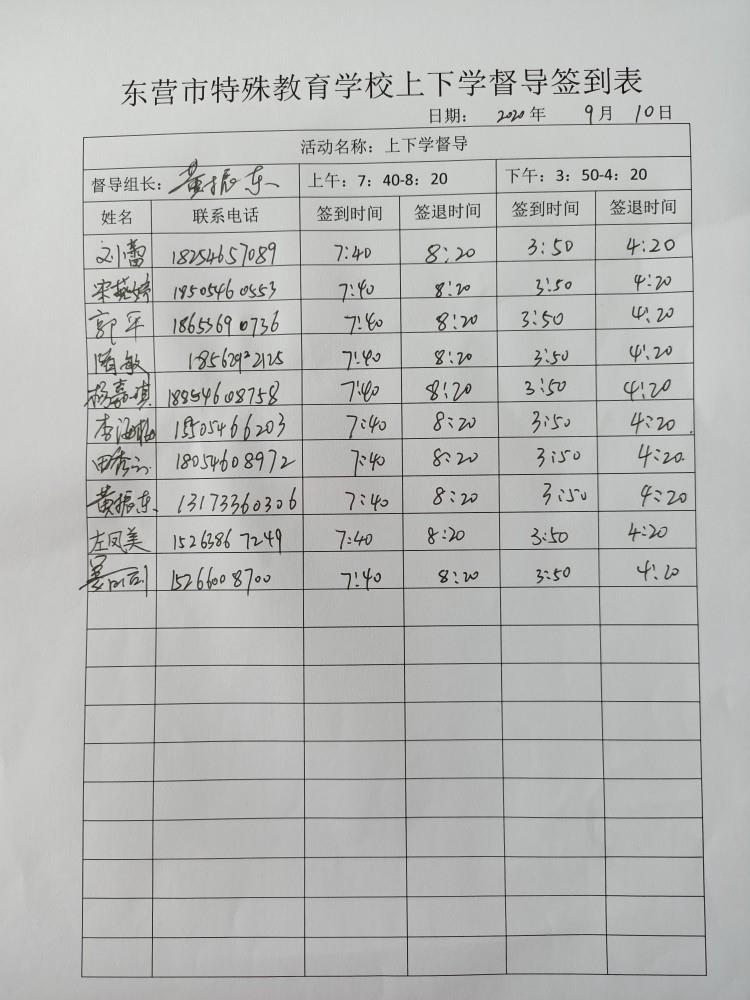 东营市特殊教育学校上下学督导签到表
日期： 2020年 9月 10日
活动名称：上下学督导
督导组长：黄振东 上午：7：40-8：20 下午：3：50-4：20
姓名 联系电话 签到时间 签退时间 签到时间 签退时间
刘蕾 18254657089 7:40 8:20 3:50 4:20
宋燕婷 18505460553 7:40 8:20 3:50 4:20
郭平 18653690736 7:40 8:20 3:50 4:20
隋敏 18562922125 7:40 8:20 3:50 4:20
杨嘉琪 18954608758 7:40 8:20 3:50 4:20
李海梅 15505466203 7:40 8:20 3:50 4:20
田秀云 18054608972 7:40 8:20 3:50 4:20
黄振东 13173360306 7:40 8:20 3:50 4:20
左凤美 15263867249 7:40 8:20 3:50 4:20
15266008700 7:40 8:20 3:50 4:20